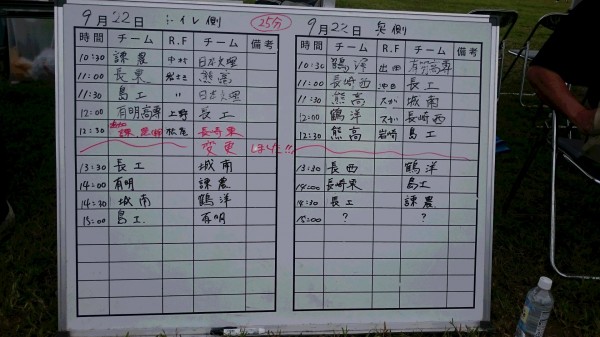 9月22日 トイレ側 25分
時間 チーム R.F チーム 備考
10:30 諫農 中村 日本文理
11:00 長東 熊高
11:30 島工 〃 日本文理
12:00 有明高専 上野 長工
12:30 長崎東
変更 しました!!
13:30 長工 城南
14:00 有明 諫農
14:30 城南 鶴洋
15:00 島工 有明
9月22日 奥側
時間 チーム R.F チーム 備考
10:30 鶴洋 出田 有明高専
11:00 長崎西 長工
11:30 熊高 スガ 城南
12:00 鶴洋 スガ 長崎西
12:30 熊高 岩崎 島工
13:30 長西 鶴洋
14:00 長崎東 島工
14:30 長工 諫農
15:00 ? ?